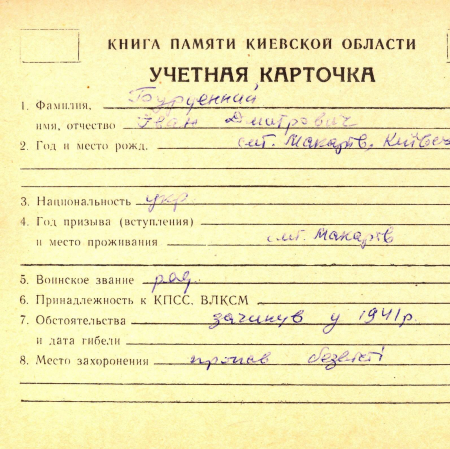 КНИГА ПАМЯТИ КИЕВСКОЙ ОБЛАСТИ
УЧЕТНАЯ КАРТОЧКА
1. Фамилия,
имя, отчество Іван Дмитрович
2. Год и место рожд. смт. Макарів, Київсь
3. Национальность укр.
4. Год призыва (вступления)
и место проживания смт. Макарів
5. Воинское звание ряд.
6. Принадлежность к КПСС, ВЛКСМ
7. Обстоятельства загинув у 1941р.
и дата гибели
8. Место захоронения пропав безвісті